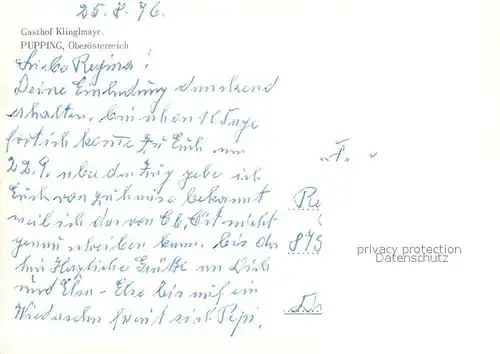 25.8.76.
Gasthof Klinglmayr.
PUPPING, Oberösterreich
Liebe Regina!
Deine Einladung dankend
erhalten. bin schon 10 Tage
hier ich komme zu Euch am
22.9. aber den Zug gebe ich
Euch von zuhause bekannt
weil ich das von hier nicht
genau schreiben kann. bis da
hin Herzliche Grüße an Dich
und Elsa - Else bis auf ein
Wiedersehn freut sich Pepi.
Re
875
privacy protection
Datenschutz